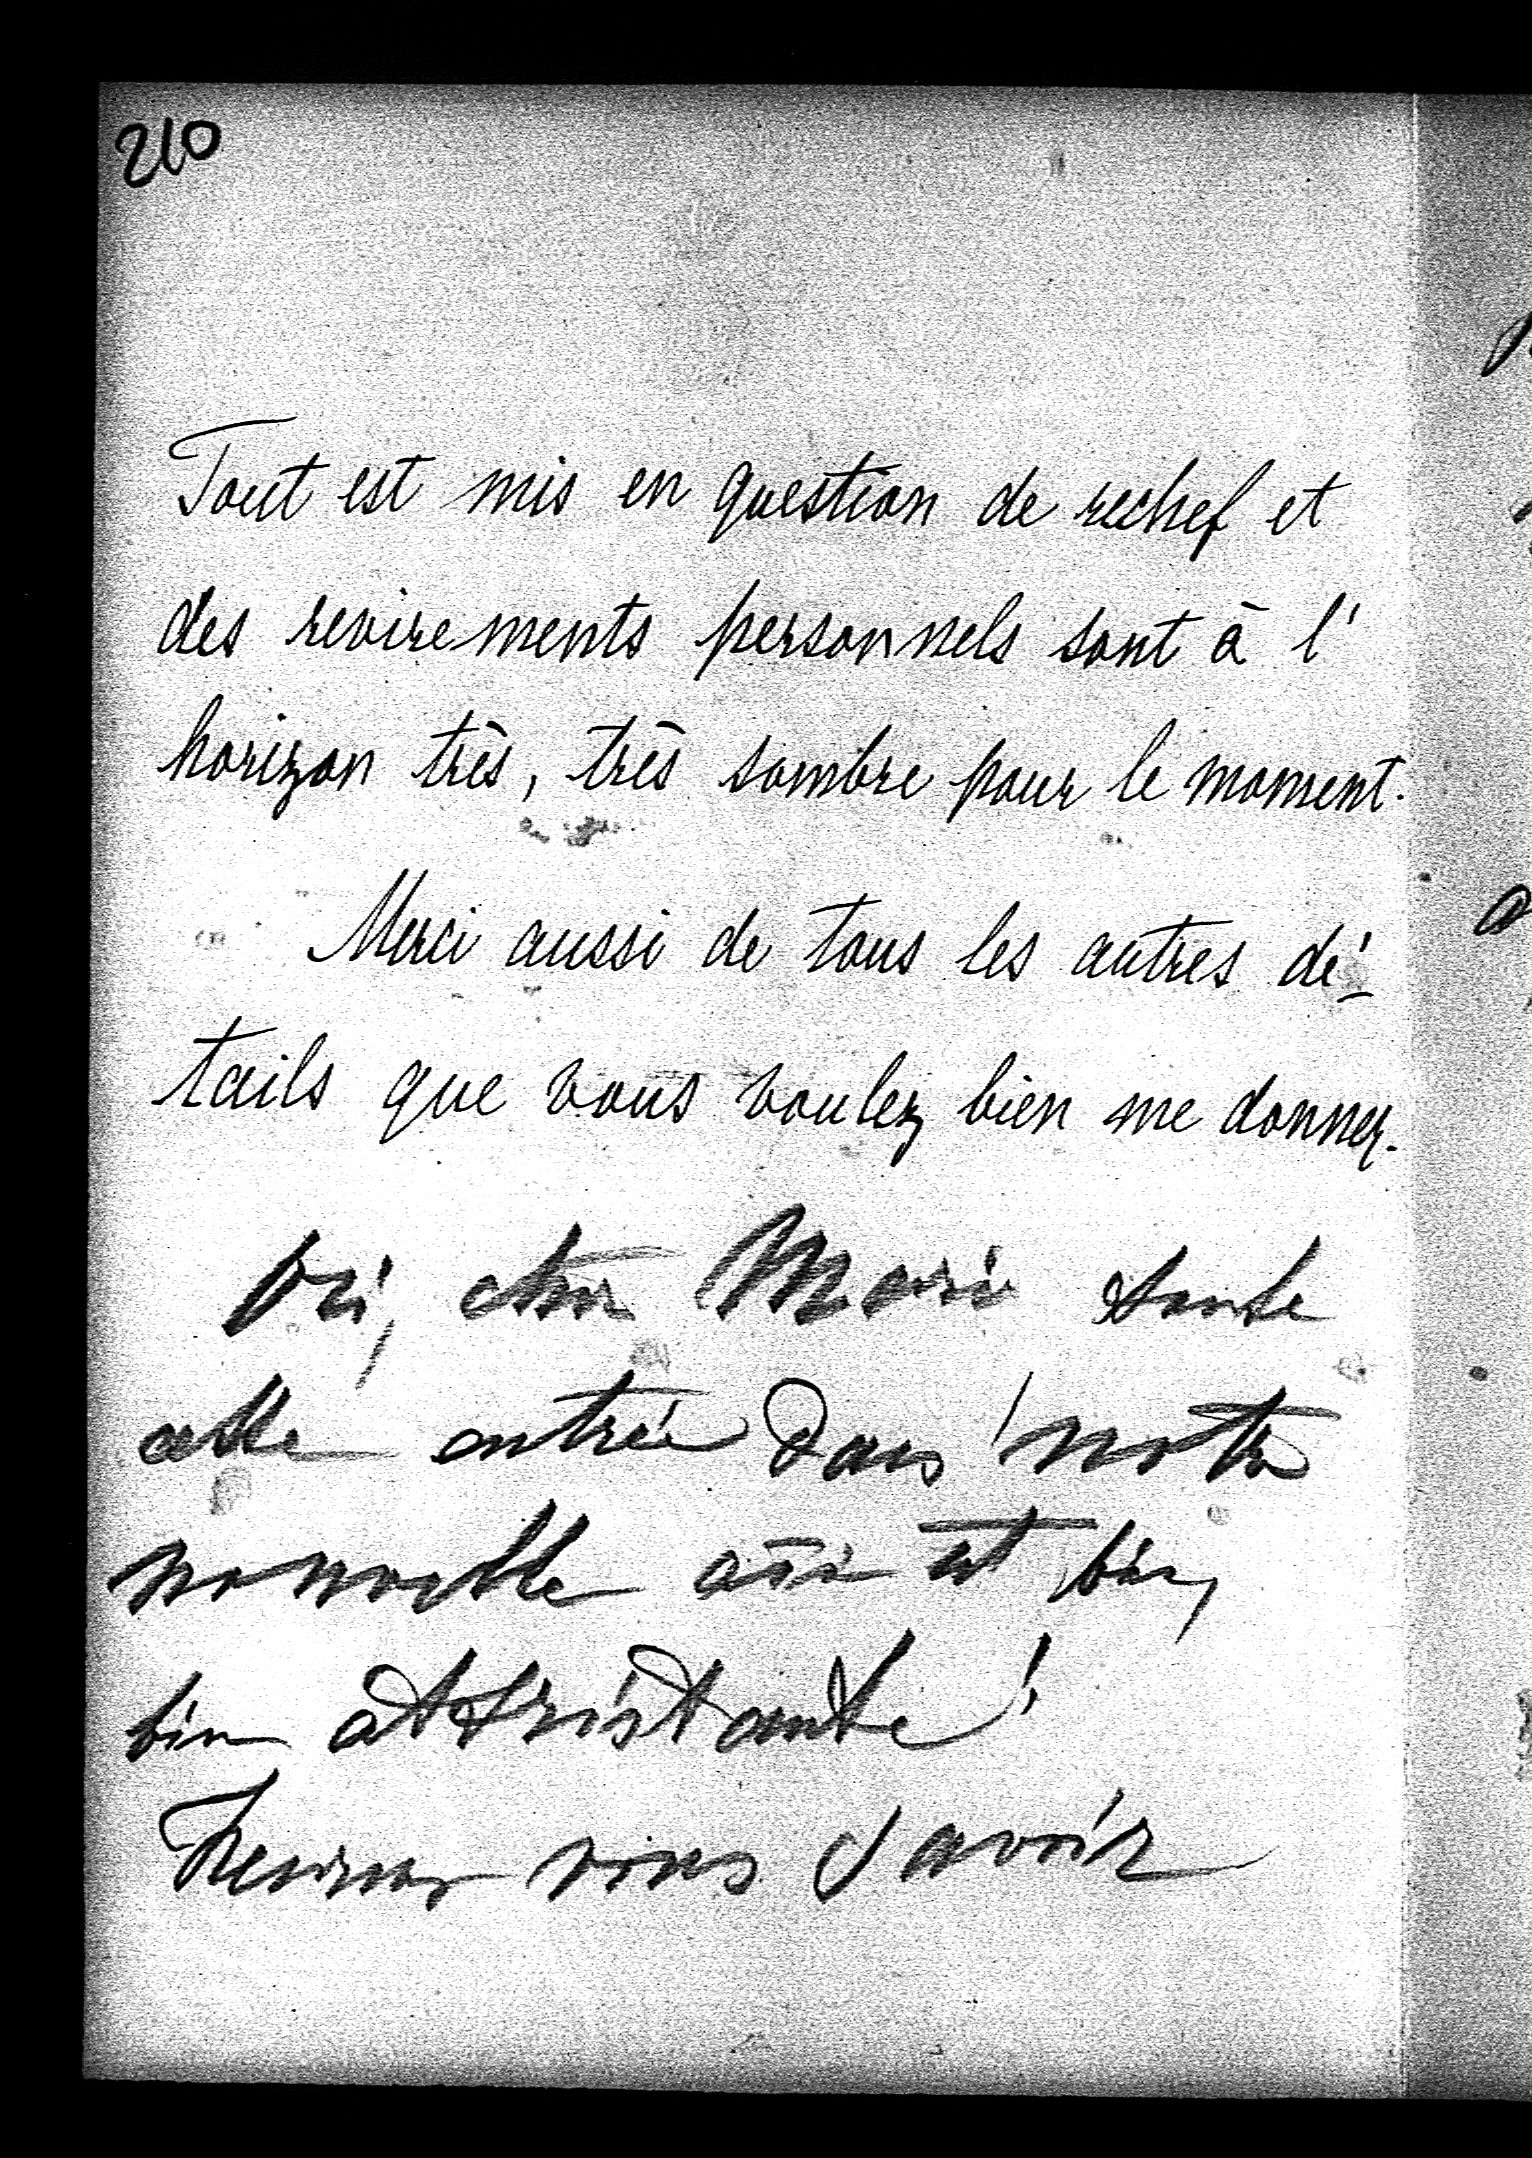 210
Tout est mis en question de rechef et
des revirements personnels sont à l'
horizon très, très sombre pour le moment.
Merci aussi de tous les autres dé-
tails que vous voulez bien me donner.
Oui, cher Marie toute
cette entrée dans notre
nouvelle ère est bien,
bien attristante!
vous savoir